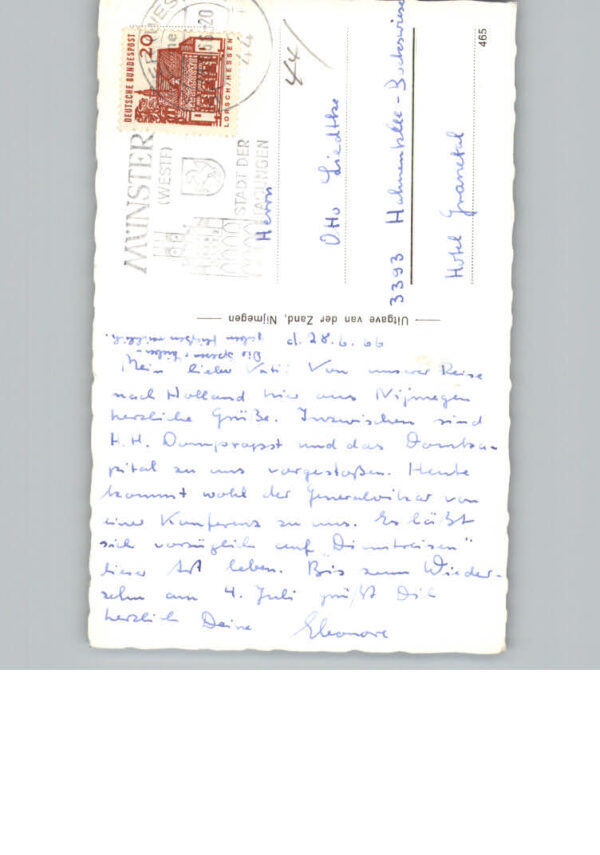 DEUTSCHE BUNDESPOST
20
LORSCH/HESSEN
44
MÜNSTER
(WESTF)
STADT DER
TAGUNGEN
44/
Herrn
Otto Liedtke
3393 Hahnenklee-Bockswiese
Hotel Granetal
465
Uitgave van der Zand, Nijmegen
d. 28.6.66
Mein lieber Vati! Von unserer Reise
nach Holland hier aus Nijmegen
herzliche Grüße. Inzwischen sind
H.H. Dompropst und das Domka-
pital zu uns vorgestoßen. Heute
kommt wohl der Generalvikar von
einer Konferenz zu uns. Es läßt
sich vorzüglich auf "Dienstreisen"
dieser Art leben. Bis zum Wieder-
sehn am 4. Juli grüßt Dich
herzlich Deine Eleonore